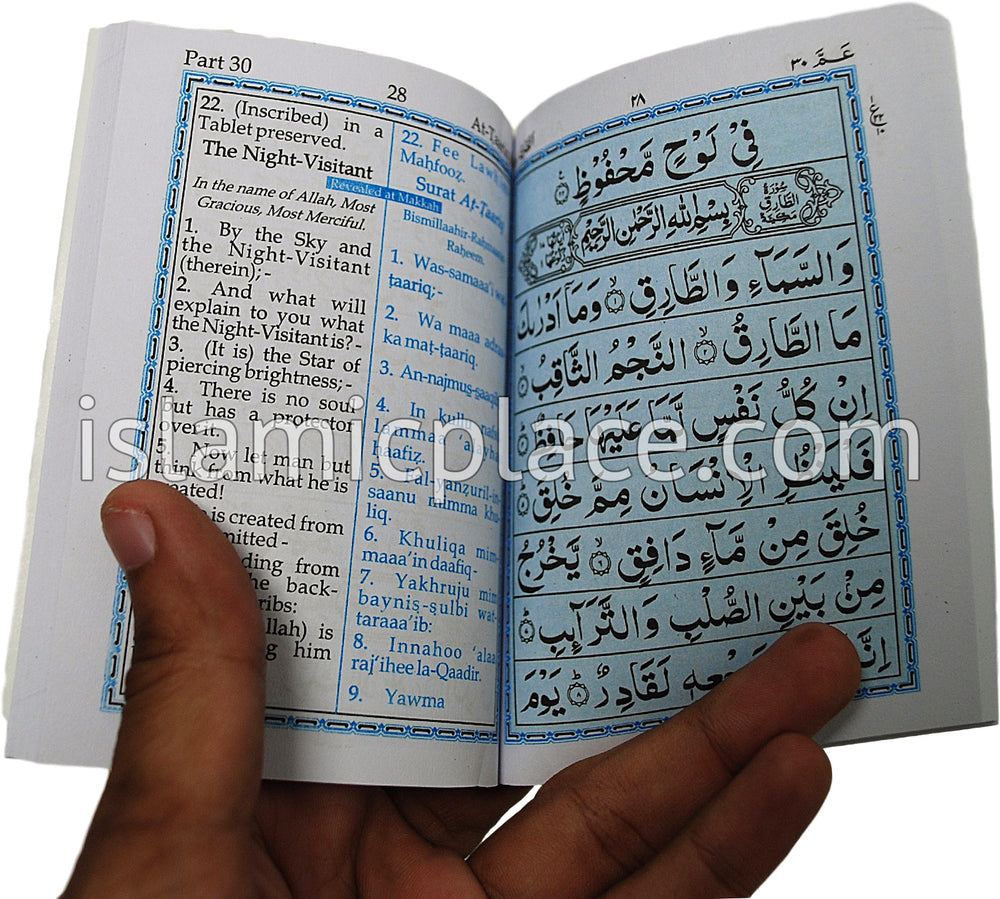 Part 30
28
22. (Inscribed) in a
Tablet preserved.
The Night-Visitant
Revealed at Makkah
In the name of Allah, Most
Gracious, Most Merciful.
1. By the Sky and
the Night-Visitant
(therein);-
2. And what will
explain to you what
the Night-Visitant is?-
3. (It is) the Star of
piercing brightness;-
4. There is no soul
but has a protector
over it.
5. Now let man but
think from what he is
is created from
mitted -
ding from
back-
ribs:
llah) is
him
22. Fee
Mahfooz.
Surat At-Taariq
Bismillaahir-
Raheem.
1. Was-samaaa'i
ţaariq;-
2. Wa maaa
ka maţ-ţaariq.
3. An-najmuş-şaaqib
4. In kullu
lammaa
haafiz.
5. Fal-yanzuril-in-
saanu mimma khu-
liq.
6. Khuliqa mim-
maaa'in daafiq-
7. Yakhruju mim
bayniş-şulbi wat-
taraaa'ib:
8. Innahoo 'alaa
raj'ihee la-Qaadir.
9. Yawma
عَمَّ ٣٠
٢٨
فِيْ لَوْحٍ مَّحْفُوْظٍ ۝٢٢
بِسْمِ اللهِ الرَّحْمٰنِ الرَّحِيْمِ
وَالسَّمَآءِ وَالطَّارِقِ ۝١ وَمَآ اَدْرٰىكَ
مَا الطَّارِقُ ۝٢ النَّجْمُ الثَّاقِبُ ۝٣
اِنْ كُلُّ نَفْسٍ لَّمَّا عَلَيْهَا حَافِظٌ ۝٤
فَلْيَنْظُرِ الْاِنْسَانُ مِمَّ خُلِقَ ۝٥
خُلِقَ مِنْ مَّآءٍ دَافِقٍ ۝٦ يَّخْرُجُ
مِنْۢ بَيْنِ الصُّلْبِ وَالتَّرَآئِبِ ۝٧
لَقَادِرٌ ۝٨ يَوْمَ
islamicplace.com